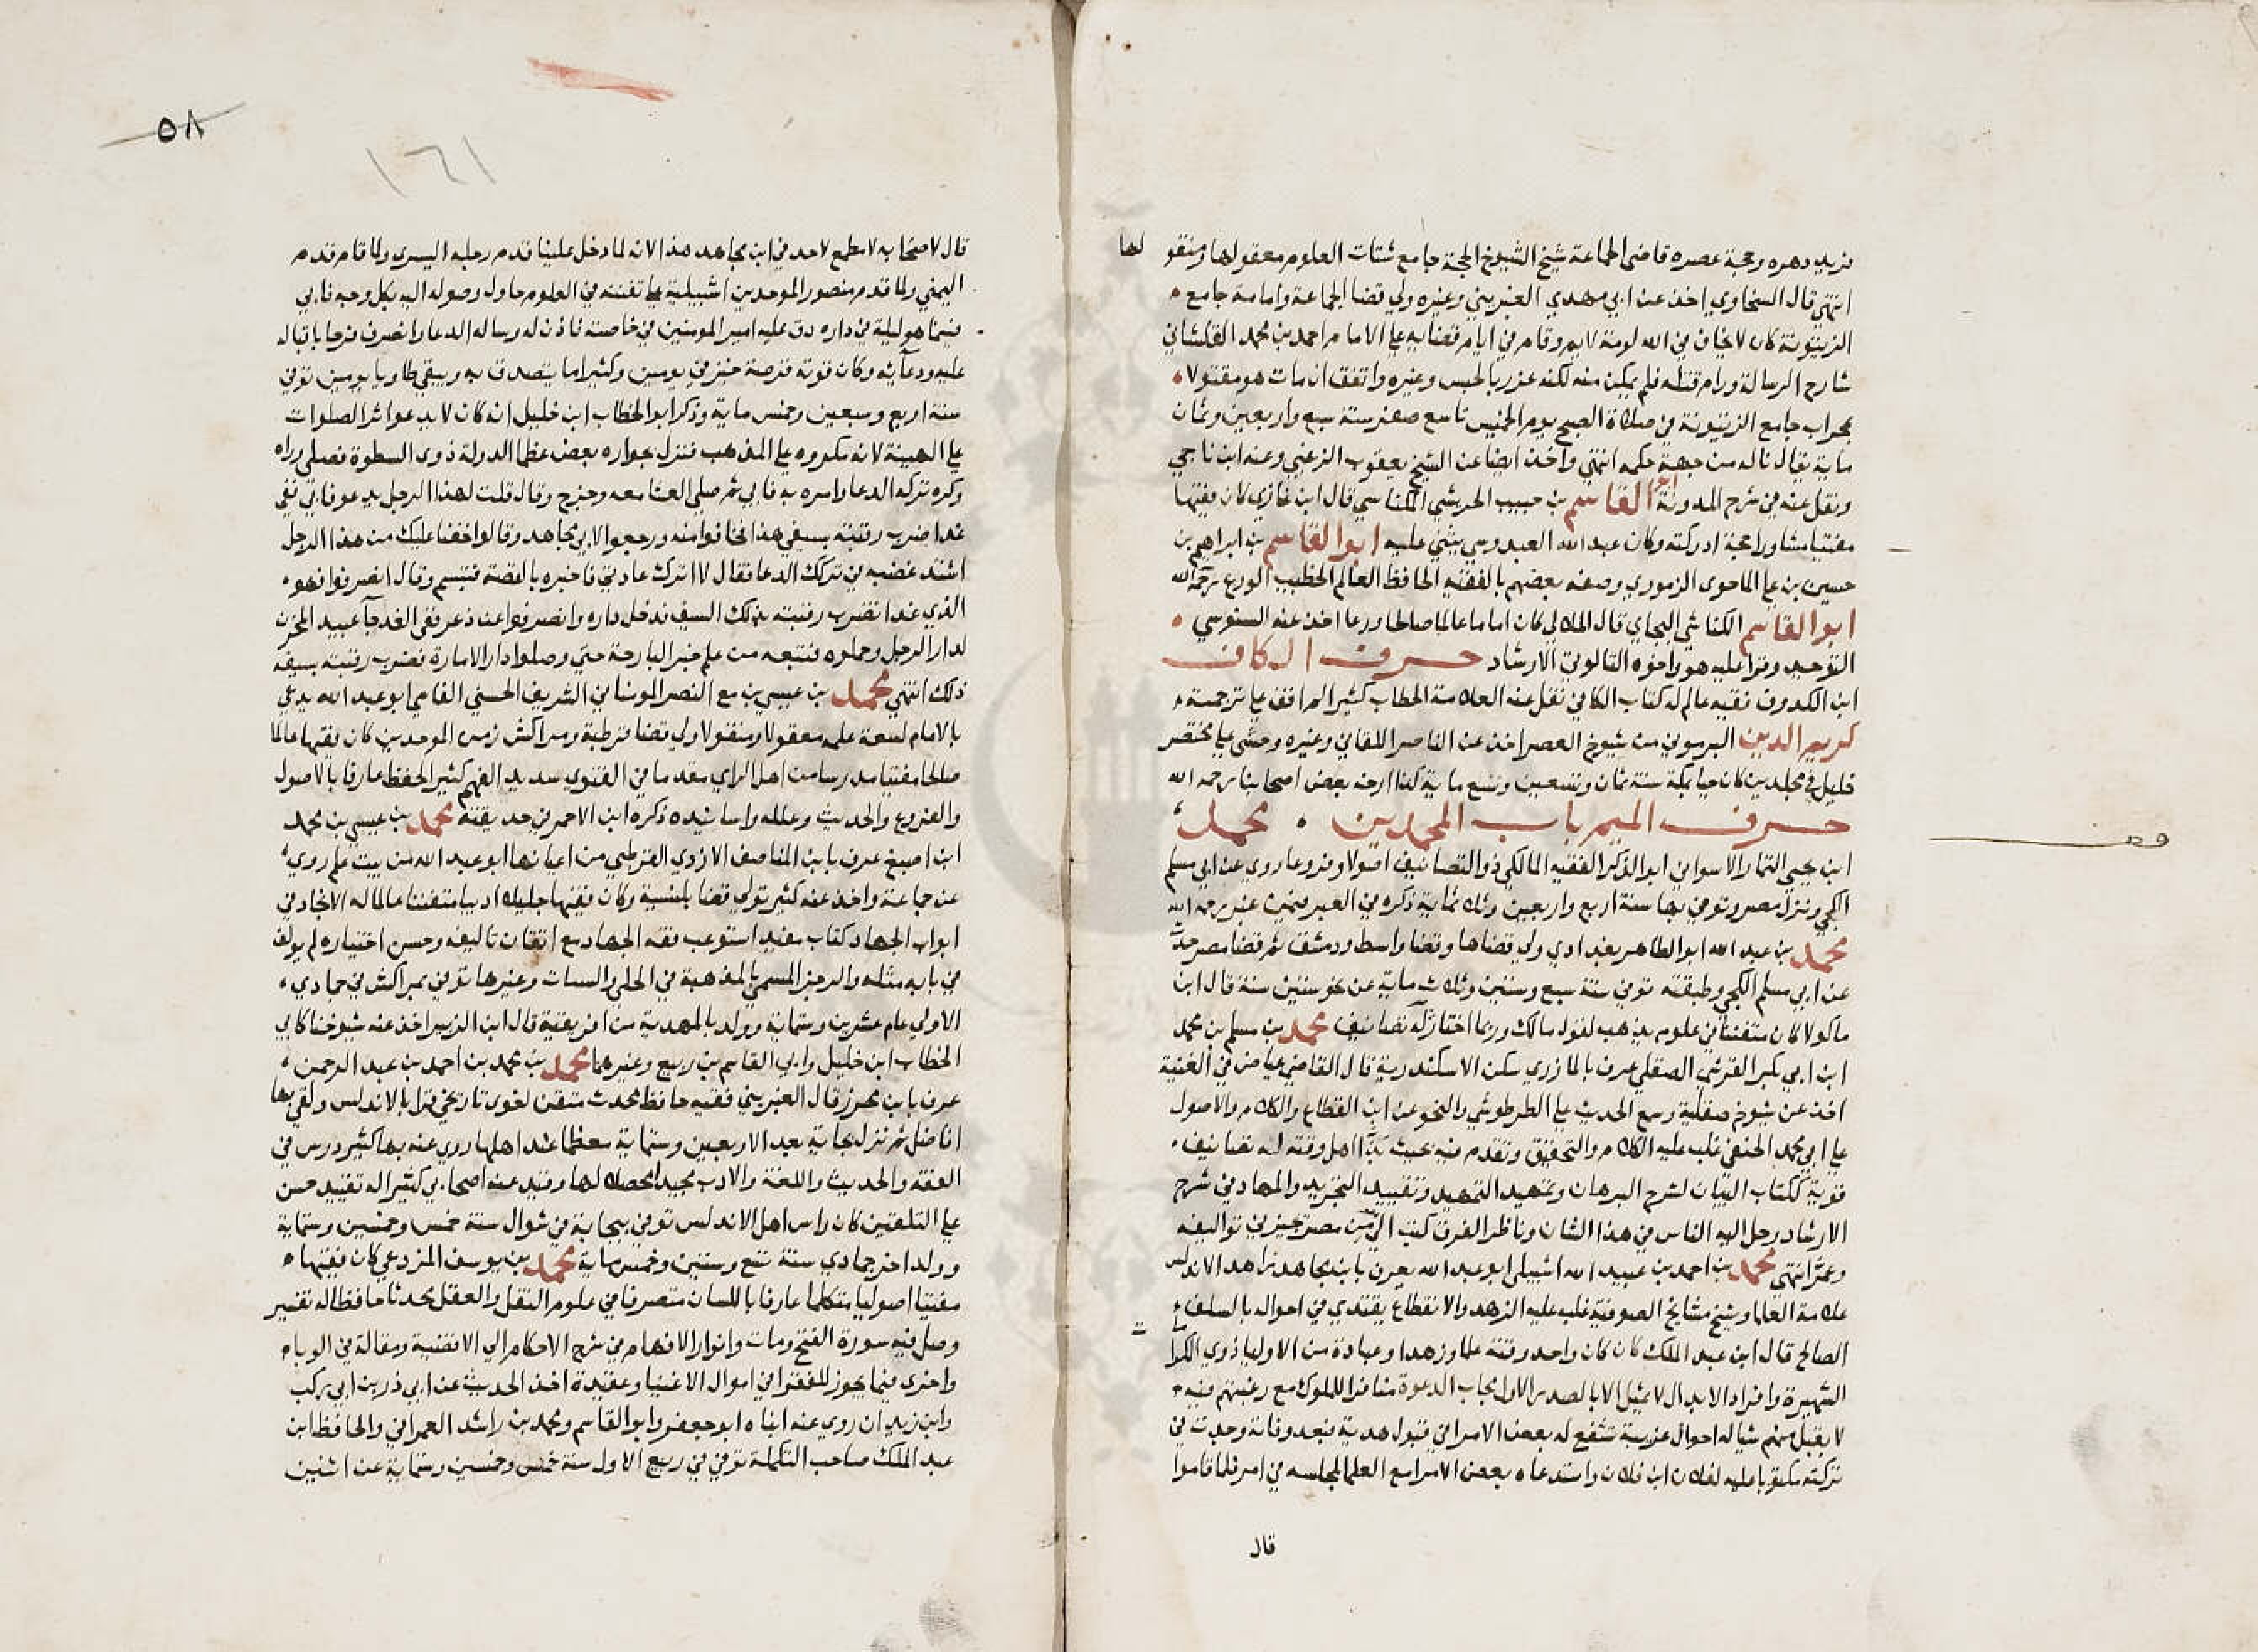 فريد دهره وحجة عصره قاضي الجماعة شيخ الشيوخ الحجة جامع شتات العلوم معقولها ومنقو لها
انتهى قال السخاوي اخذ عن ابي مهدي الغبريني وغيره ولي قضا الجماعة وامامة جامع
الزيتونة كان لا يخاف في الله لومة لايم وقام في ايام قضايه على الامام احمد بن محمد القلشاني
شارح الرسالة ورام قتله فلم يمكن منه لكنه عزر بالحبس وغيره واتفق ان مات هو مقتولا
بمحراب جامع الزيتونة في صلاة الصبح يوم الخميس تاسع صفر سنة سبع واربعين وثمان
ماية يقال ناله من جهة حكمه انتهى واخذ ايضا عن الشيخ يعقوب الزغبي وعنه ابن ناجي
ونقل عنه في شرح المدونة ابو القاسم بن حبيب الحريشي المكناسي قال ابن غازي كان فقيها
مفتيا مشاورا حجة ادركته وكان عبد الله العبدوسي يثني عليه ابوا القاسم بن ابراهيم بن
حسين بن علي الماجوي الزموري وصفه بعضهم بالفقيه الحافظ العالم الخطيب الورع رحمه الله
ابوا القاسم الكناشي البجاي قال الملالي كان اماما عالما صالحا ورعا اخذ عنه السنوسي
التوحيد وقرا عليه هو واخوه التالوتي الارشاد حرف الكاف
ابن الكدوف فقيه عالم له كتاب الكافي نقل عنه العلامة الحطاب كثيرا لم اقف على ترجمته
كريم الدين البرموني من شيوخ العصر اخذ عن الناصر اللقاني وغيره وحشى على مختصر
خليل في مجلدين كان حيا بمكة سنة ثمان وتسعين وتسع ماية كذا ارخه بعض اصحابنا رحمه الله
حرف الميم باب المحمدين محمد
ابن يحيى التمار الاسواني ابو الذكر الفقيه المالكي ذو التصانيف اصولا وفروعا روي عن ابي مسلم
الكجي ونزل مصر وتوفي بها سنة اربع واربعين وثلاثماية ذكره في العبر فيمن غبر رحمه الله
محمد بن عبد الله ابو الطاهر بغدادي ولي قضاها وقضا واسط ودمشق ثم قضا مصر حدث
عن ابي مسلم الكجي وطبقته توفي سنة سبع وستين وثلاث ماية عن نحو ستين سنة قال ابن
ماكولا كان متفننا في علوم يذهب لقول مالك وربما اختار له تصانيف محمد بن مسلم بن محمد
ابن ابي بكر القرشي الصقلي عرف بالمازري سكن الاسكندرية قال القاضي عياض في الغنية
اخذ عن شيوخ صقلية وسمع الحديث على الطرطوشي والنحو عن ابن القطاع والكلام والاصول
على ابي محمد الحنفي غلب عليه الكلام والتحقيق وتقدم فيه بحيث بذ اهل وقته له تصانيف
قوية ككتاب البيان لشرح البرهان وتمهيد التمهيد وتقييد التجريد والمهاد في شرح
الارشاد رحل اليه الناس في هذا الشان وناظر الفرق كتب الي من مصر يخبرني تواليفه
وعمر انتهى محمد بن احمد بن عبيد الله اشبيلي ابو عبد الله يعرف بابن مجاهد زاهد الاندلس
علامة العلما وشيخ مشايخ الصوفية غلب عليه الزهد والانقطاع يقتدي في احواله بالسلف
الصالح قال ابن عبد الملك كان واحد وقته علما وزهدا وعبادة من الاوليا ذوي الكرامات
الشهيرة وافراد الابدال لا يمثل الا بالصدر الاول مجاب الدعوة منافرا للملوك مع رغبتهم فيه
لا يقبل منهم شيا له احوال غريبة تشفع له بعض الامرا في قبول هدية فبعد وفاته وجدت في
تركته مكتوبا عليه لفلان ابن فلان واستدعاه بعض الامرا مع العلما لمجلسه في امر فلما قاموا
قال
٥٨
١٦١
قال لاصحابه لا مطمع لاحد في ابن مجاهد هذا لانه لما دخل علينا قدم رجله اليسرى ولما قام قدم
اليمنى ولما قدم منصور الموحدين اشبيلية على تفننه في العلوم حاول وصوله اليه بكل وجه فابى
فبينما هو ليلة في داره دق عليه امير المومنين في خاصته فاذن له وساله الدعا وانصرف فرحا باقباله
عليه ودعائه وكان قوته قرصة خبز في يومين وكثيرا ما يتصدق به ويبقى طاويا يومين توفي
سنة اربع وسبعين وخمس ماية وذكر ابو الخطاب ابن خليل انه كان لا يدعوا اثر الصلوات
على الهيئة لانه مكروه على المذهب فنزل بجواره بعض عظما الدولة ذوي السطوة فصلى وراه
وكره تركه الدعا وامره به فابى ثم صلى العشا معه وخرج وقال قلت لهذا الرجل يدعو فابى ففي
غدا ضرب رقبته بسيفي هذا فخافوا منه ورجعوا لابن مجاهد وقالوا خفنا عليك من هذا الرجل
اشتد غضبه في تركك الدعا فقال لا اترك عادتي فاخبره بالقصة فتبسم وقال انصرفوا فهو
الذي غدا تضرب رقبته بذلك السيف فدخل داره وانصرفوا عن ذعر ففي الغد جا عبيد المخزن
لدار الرجل وحملوه فتبعه من علم خبر البارحة حتى وصلوا دار الامارة فضرب رقبته بسيفه
ذلك انتهى محمد بن عيسى بن مع النصر المومناني الشريف الحسني الفاسي ابو عبد الله يدعى
بالامام لسعة علمه معقولا ومنقولا ولي قضا قرطبة ومراكش زمن الموحدين كان فقيها عالما
صالحا مفتيا مدرسا من اهل الراي مقدما في الفتوى سديد الفهم كثير الحفظ عارفا بالاصول
والفروع والحديث وعلله واسانيده ذكره ابن الاحمر في حديقته محمد بن عيسى بن محمد
ابن اصبغ عرف بابن المناصف الازدي القرطبي من اعيانها ابو عبد الله من بيت علم روي
عن جماعة واخذ عنه كثير تولى قضا بلنسية وكان فقيها جليلا اديبا متفننا عالما له الانجاد في
ابواب الجهاد كتاب مفيد استوعب فقه الجهاد مع اتقان تاليفه وحسن اختياره لم يولف
في بابه مثله والرجز المسمى بالمذهبة في الحلي والسيات وغيرها توفي بمراكش في جمادي
الاولي عام عشرين وستماية وولد بالمهدية من افريقية قال ابن الزبير اخذ عنه شيوخنا كابي
الخطاب ابن خليل وابي القاسم بن ربيع وغيرهما محمد بن محمد بن احمد بن عبد الرحمن
عرف بابن محرز قال الغبريني فقيه حافظ محدث متقن لغوي تاريخي قرا بالاندلس ولقي بها
افاضل ثم نزل بجاية بعد الاربعين وستماية معظما عند اهلها روي عنه بها كثير درس في
الفقه والحديث واللغة والادب مجيدا محصلا لها وقيد عنه اصحابي كثيرا له تقييد حسن
على التلقين كان راس اهل الاندلس توفي ببجاية في شوال سنة خمس وخمسين وستماية
وولد اخر جمادي سنة تسع وستين وخمس ماية محمد بن يوسف المزدغي كان فقيها
مفتيا اصوليا متكلما عارفا باللسان متصرفا في علوم النقل والعقل محدثا حافظا له تفسير
وصل فيه سورة الفتح ومات وانوار الافهام في شرح الاحكام الي الاقضية ومقالة في الوباء
واخرى فيما يجوز للفقرا في اموال الاغنيا وعقيدة اخذ الحديث عن ابي ذر بن ابي ركب
وابن زيدان روي عنه ابناه ابو جعفر وابو القاسم ومحمد بن راشد العمراني والحافظ ابن
عبد الملك صاحب التكملة توفي في ربيع الاول سنة خمس وخمسين وستماية عن اثنين